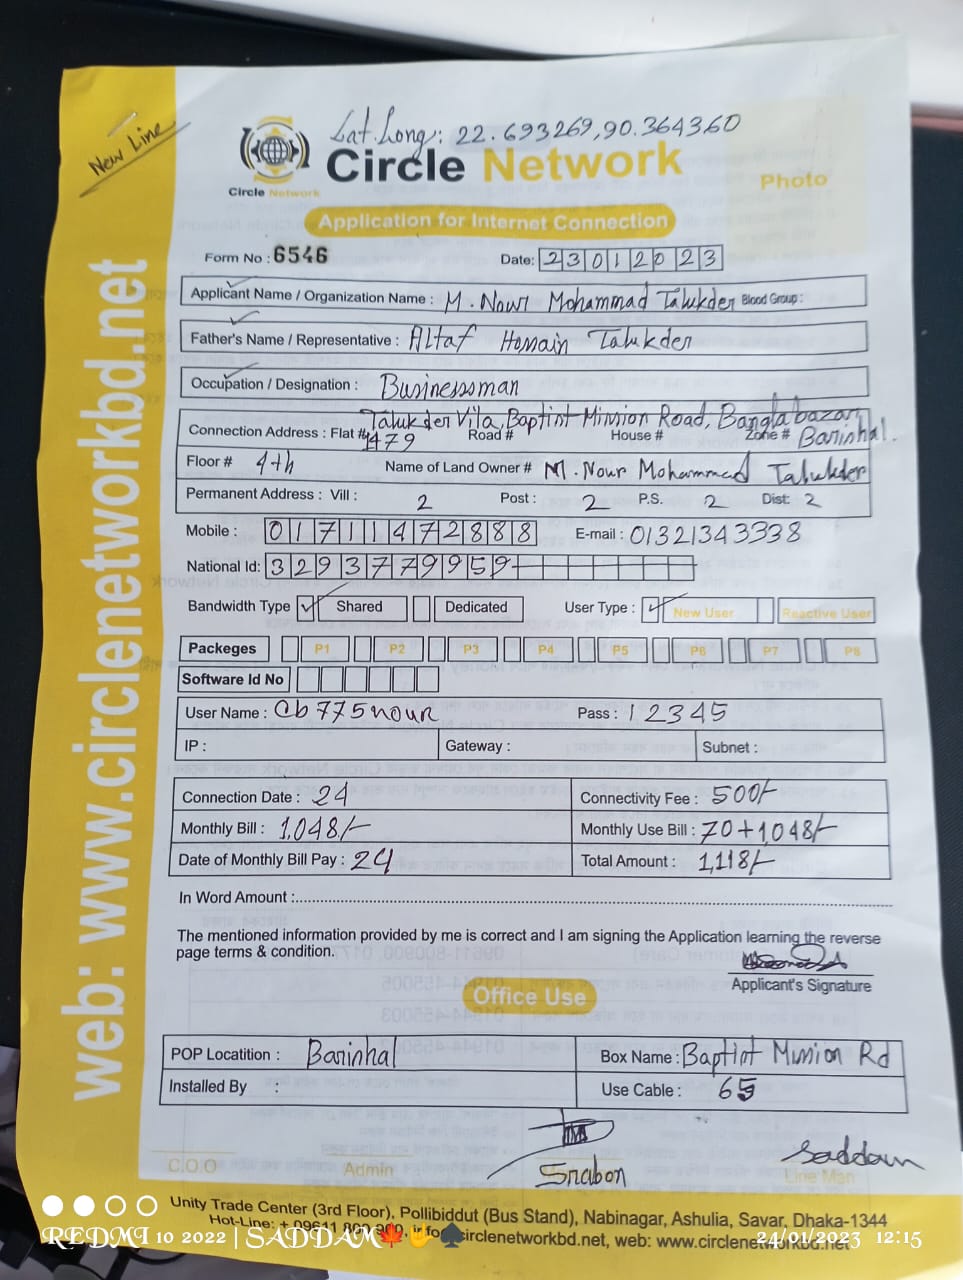 New Line
Lat.Long: 22.693269,90.364360
Circle Network
Circle Network
Photo
Application for Internet Connection
Form No : 6546
Date: 23012023
Applicant Name / Organization Name : M. Nour Mohammad Talukder Blood Group :
Father's Name / Representative : Altaf Hossain Talukder
Occupation / Designation : Businessman
Talukder Vila, Baptist Mission Road, Banglabazar,
Connection Address : Flat # 1479 Road # House # Zone # Barishal.
Floor # 4th Name of Land Owner # M. Nour Mohammad Talukder
Permanent Address : Vill : 2 Post : 2 P.S. 2 Dist: 2
Mobile : 01711472888 E-mail : 01321343338
National Id: 3293779959
Bandwidth Type ✓ Shared Dedicated User Type : ✓ New User Reactive User
Packeges P1 P2 P3 P4 P5 P6 P7 P8
Software Id No
User Name : cb775nour Pass : 12345
IP : Gateway : Subnet :
Connection Date : 24 Connectivity Fee : 500/-
Monthly Bill : 1,048/- Monthly Use Bill : 70+1,048/-
Date of Monthly Bill Pay : 24 Total Amount : 1,118/-
In Word Amount :
The mentioned information provided by me is correct and I am signing the Application learning the reverse
page terms & condition.
Applicant's Signature
Office Use
POP Locatition : Barishal Box Name : Baptist Mission Rd
Installed By : Use Cable : 65
Snabon
Saddam
C.O.O Admin Line Man
Unity Trade Center (3rd Floor), Pollibiddut (Bus Stand), Nabinagar, Ashulia, Savar, Dhaka-1344
Hot-Line: + 09611 800 900, info circlenetworkbd.net, web: www.circlenetworkbd.net
web: www.circlenetworkbd.net
REDMI 10 2022 | SADDAM🍁🤚♠
24/01/2023 12:15